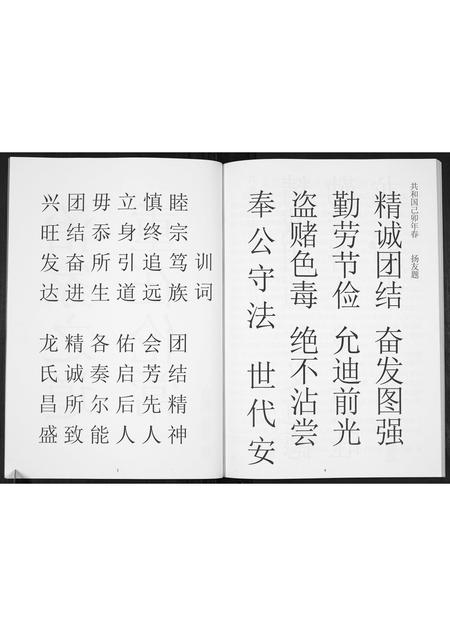 共和国己卯年春 扬友题
精诚团结 奋发图强
勤劳节俭 允迪前光
盗赌色毒 绝不沾尝
奉公守法 世代安
4
训词
睦宗笃族 团结精神
慎终追远 会芳先人
立身引道 佑启后人
毋忝所生 各奏尔能
团结奋进 精诚所致
兴旺发达 龙氏昌盛